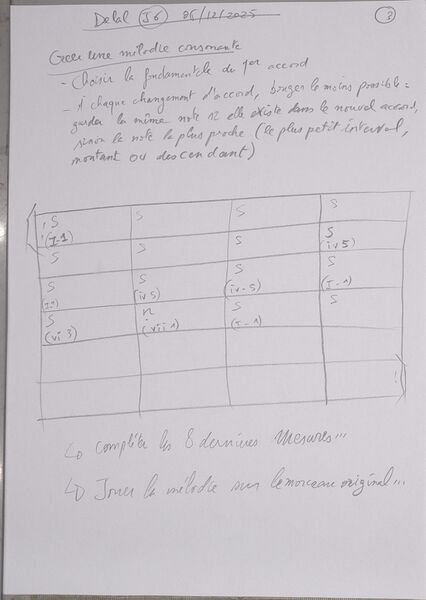 Delal J6 06/12/2025 3
Créer une mélodie consonante
- Choisir la fondamentale du 1er accord
- A chaque changement d'accord, bouger le moins possible :
garder la même note si elle existe dans le nouvel accord,
sinon la note la plus proche (le plus petit interval,
montant ou descendant)
S S S S
(I-1)
S S S S
(iv5)
S S S S
(I-1) (iv5) (iv-5) (I-1)
S n S S
(vi 3) (vii 1) (I-1)
↳ Compléter les 8 dernières mesures...
↳ Jouer la mélodie sur le morceau original...